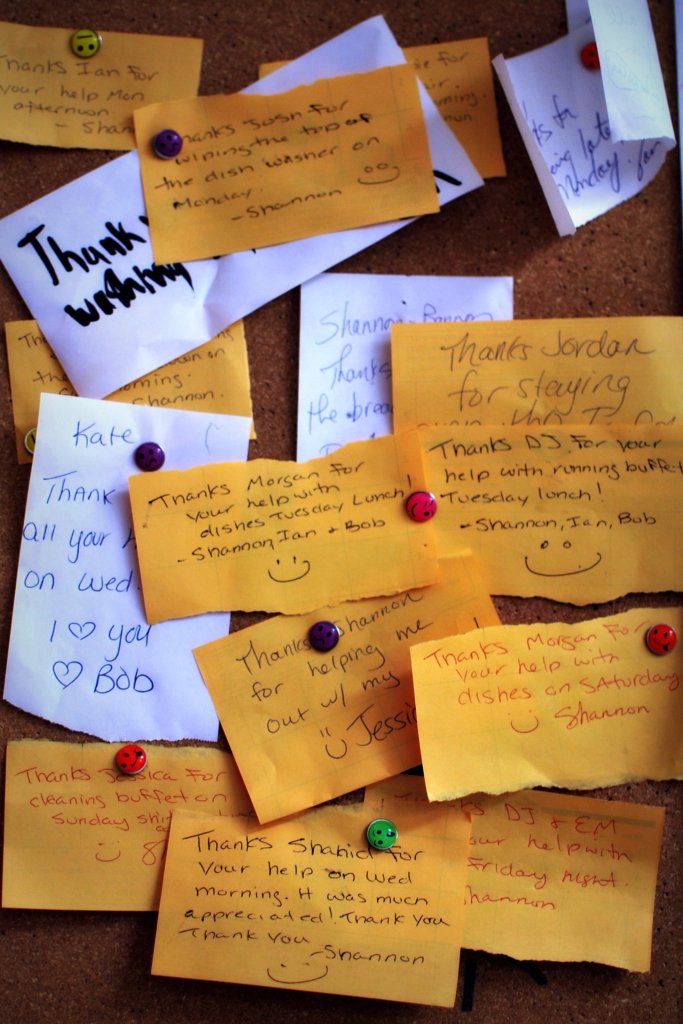 Thanks Ian for
your help Mon
afternoon.
- Shan
Thanks Josh for
wiping the top of
the dish washer on
Monday.
- Shannon
Monday.
Thank
washing
on
the
morning.
Shannon.
Shannon
Thanks
the
Thanks Jordan
for staying
Kate
Thank
all your
on wed.
I ♡ you
♡ Bob
Thanks Morgan for
your help with
dishes Tuesday Lunch!
- Shannon, Ian + Bob
Thanks DJ for your
help with running buffet
Tuesday lunch!
- Shannon, Ian, Bob
Thanks Shannon
for helping me
out w/ my
Jessic
Thanks Morgan for
your help with
dishes on Saturday
Shannon
Thanks Jessica for
cleaning buffet on
Sunday
Thanks Shahid for
your help on wed
morning. It was much
appreciated! Thank you
Thank you
- Shannon
DJ + EM
our help with
Friday night.
Shannon